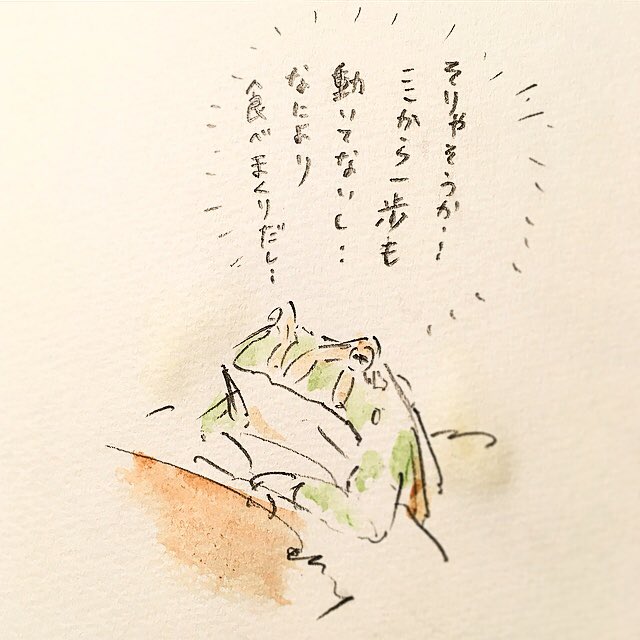 そりゃそうか・・
ここから一歩も
動いてないし・・
なにより
食べまくりだし・・